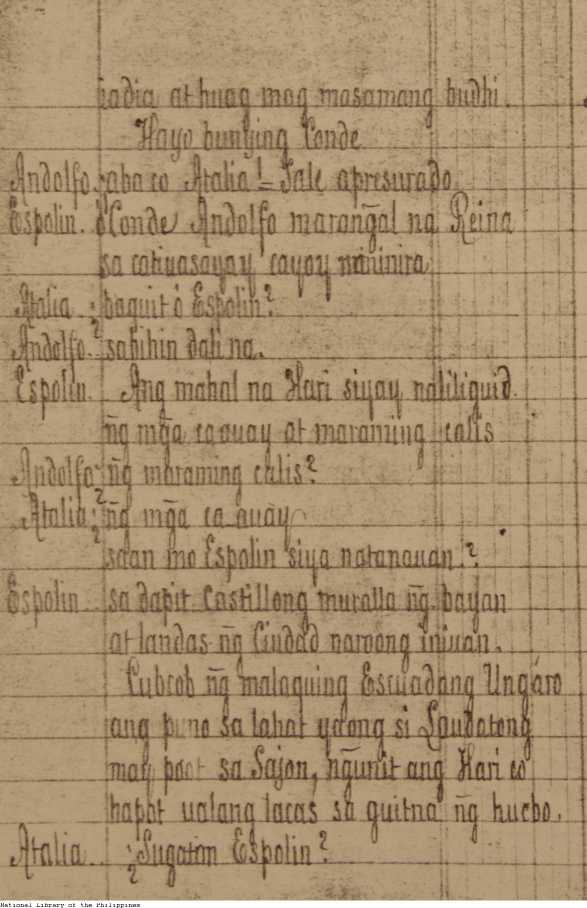 sadia at huag mag masamang budhi.
Hayo bunying Conde
Andolfo. ¡aba co Atalia! = Sale apresurado.
Espolin. Conde Andolfo marang̃al na Reina
sa catiyasayay cayoy
Atalia ¿baquit ó Espolin?
Andolfo. sabihin dali na.
Espolin. Ang mahal na Hari siyay naliliguid
ng̃ mg̃a caauay at maraming calis
Andolfo ¿ng̃ maraming calis?
Atalia ¿ng̃ mg̃a ca auay
saan mo Espolin siya natanauan?
Espolin sa dapit Castillong muralla ng̃ bayan
at landas ng̃ Ciudad naroong iniuan.
Cubcob ng̃ malaquing Escuadang Ungaro
ang puno sa lahat yaong si Laudatong
may poot sa Sajon, ng̃unit ang Hari co
hapot ualang lacas sa guitna ng̃ hucbo.
Atalia ¿Sugatan Espolin?
National Library of the Philippines